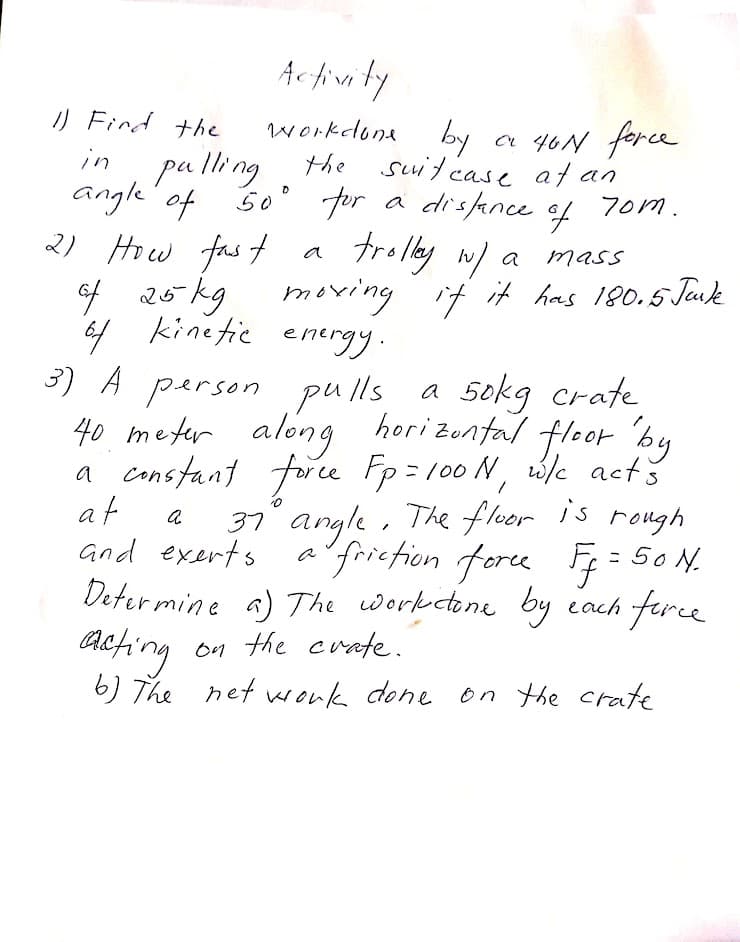 Activity
1) Find the workdone by a 40N force
in pulling the suitcase at an
angle of 50° for a distance of 70m.
2) How fast a trolley w/ a mass
of 25kg moving if it has 180.5 Joule
of kinetic energy.
3) A person pulls a 50kg crate
40 meter along horizontal floor by
a constant force Fp = 100 N, w/c acts
at a 37° angle, The floor is rough
and exerts a friction force Ff = 50 N.
Determine a) The workdone by each force
acting on the crate.
b) The net work done on the crate